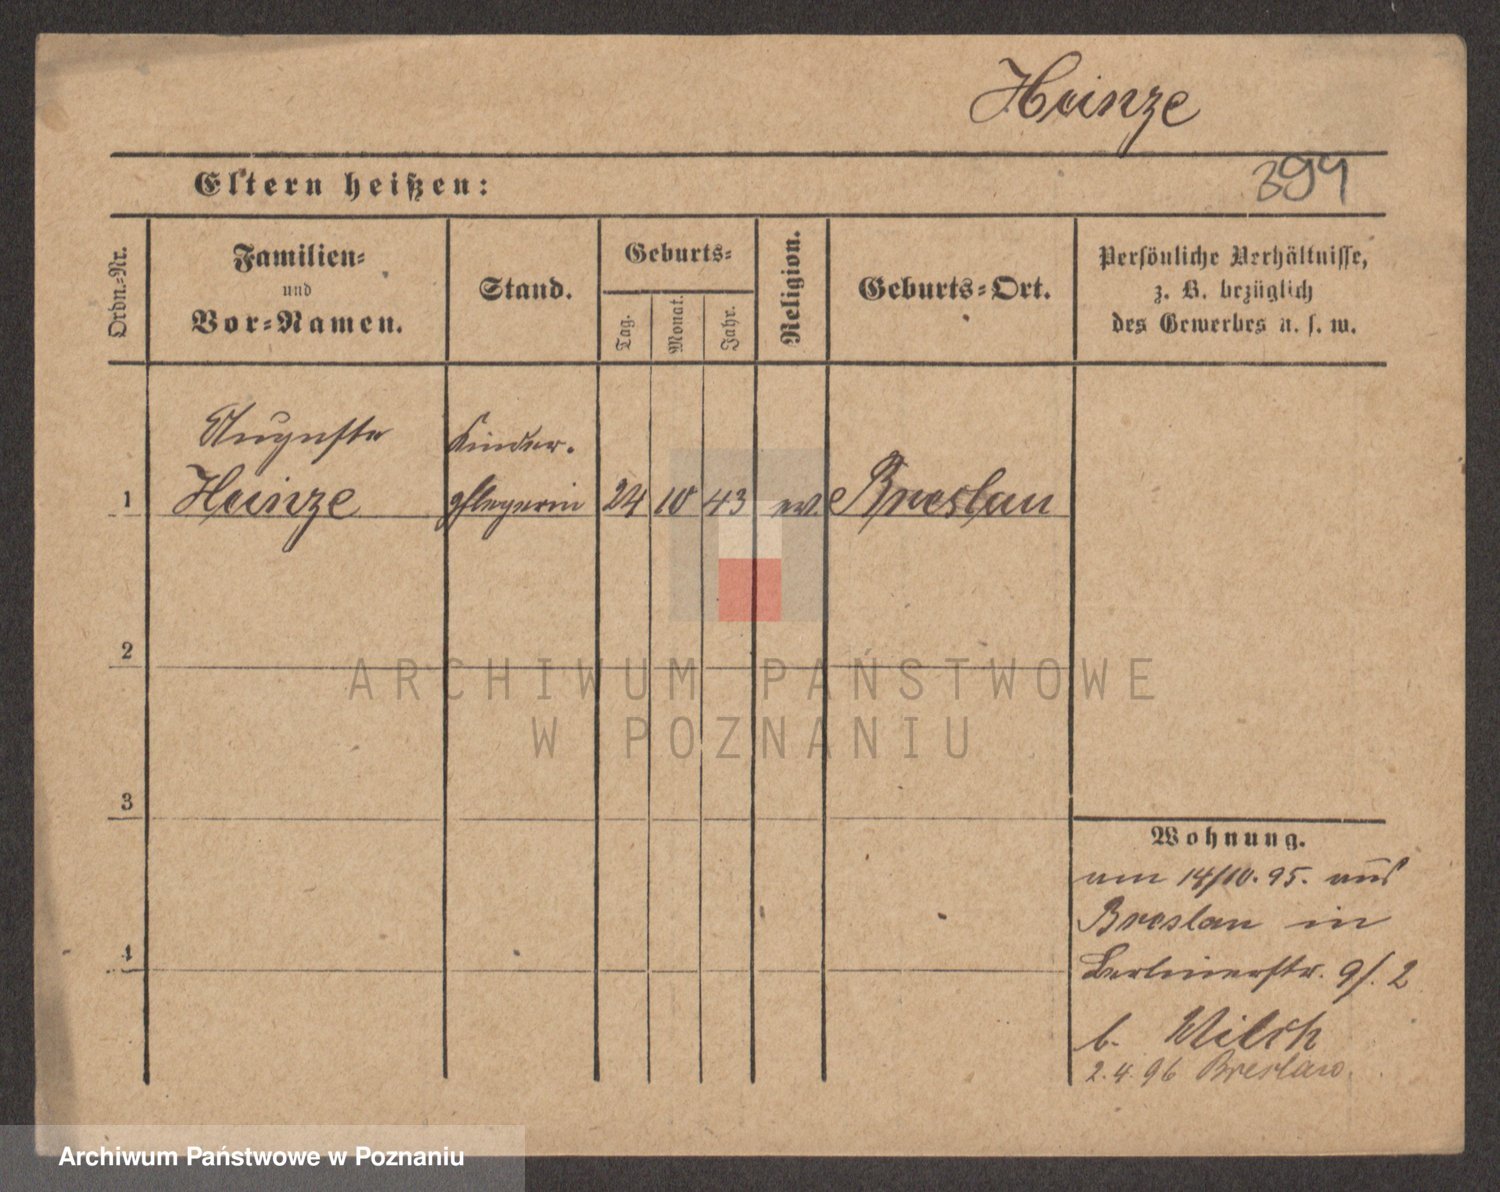 Heinze
Eltern heißen:
399
Ordn.-Nr.
Familien-
und
Vor-Namen.
Stand.
Geburts-
Tag.
Monat.
Jahr.
Religion.
Geburts-Ort.
Persönliche Verhältnisse,
z. B. bezüglich
des Gewerbes u. s. w.
Auguste Kinder-
1 Heinze pflegerin 24 10 43 ev. Breslau
2
ARCHIWUM PAŃSTWOWE
W POZNANIU
3
Wohnung.
am 14/10. 95. aus
Breslau in
4
Berlinerstr. 9/. 2
b. Milch
2. 4. 96 Breslau.
Archiwum Państwowe w Poznaniu